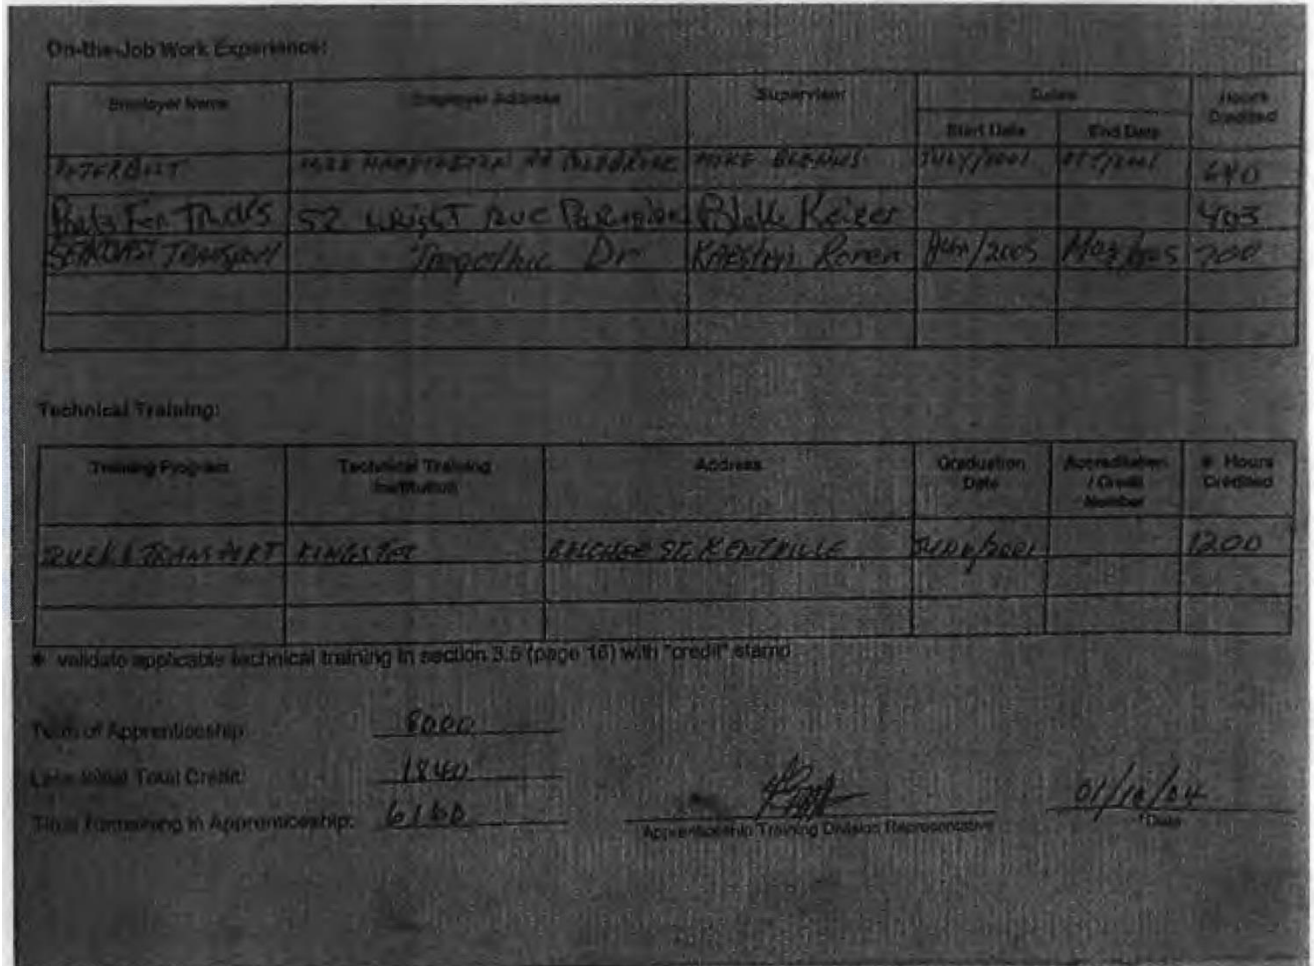 On-the-Job Work Experience:
Employer Name Employer Address Supervisor Dates Hours Credited
Start Date End Date
PETERBILT MIKE JULY/2001 OCT/2001 640
Parts For Trucks 52 WRIGHT AVE Blake Keizer 403
SEACOAST Transport Dr Roren Jan/2005 700
Technical Training:
Training Program Technical Training Institution Address Graduation Date Accreditation / Credit Number * Hours Credited
TRUCK & TRANSPORT KINGSTEC BELCHER ST. KENTVILLE /2001 1200
* validate applicable technical training in section 3.5 (page 16) with "credit" stamp
Term of Apprenticeship: 8000
Less Initial Total Credit: 1840
Time Remaining in Apprenticeship: 6160
01/10/04
Apprenticeship Training Division Representative Date